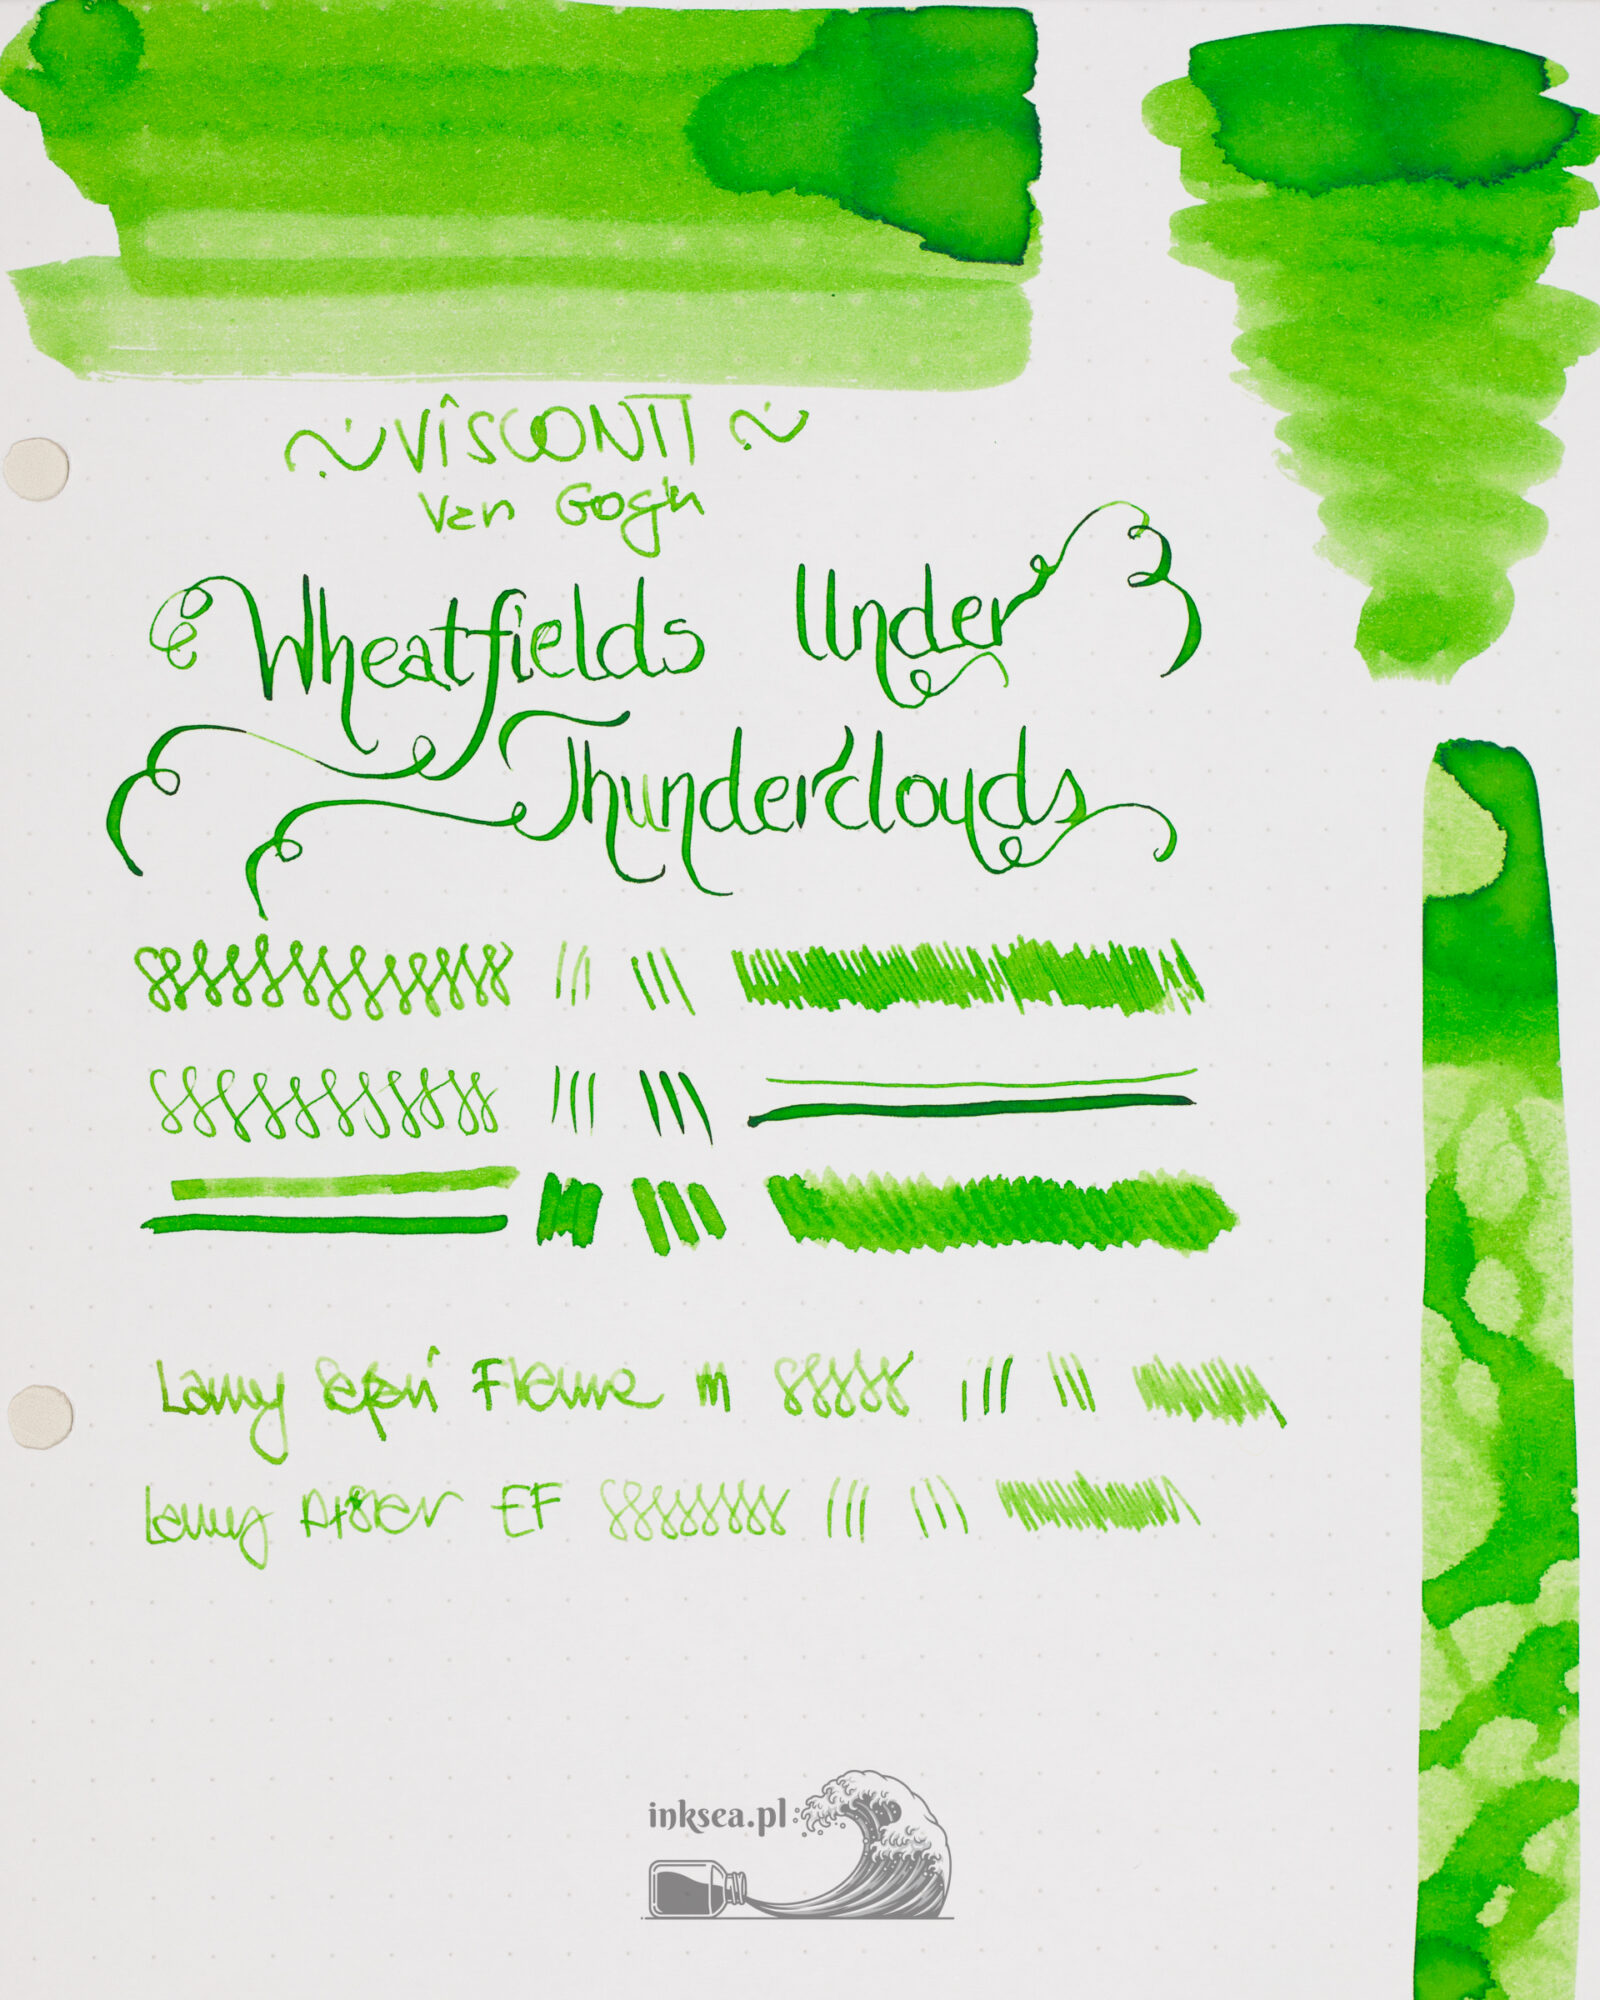 ~ VISCONTI ~
Van Gogh
Wheatfields Under
Thunderclouds
Lamy Safari Flame m
Lamy Aister EF
inksea.pl